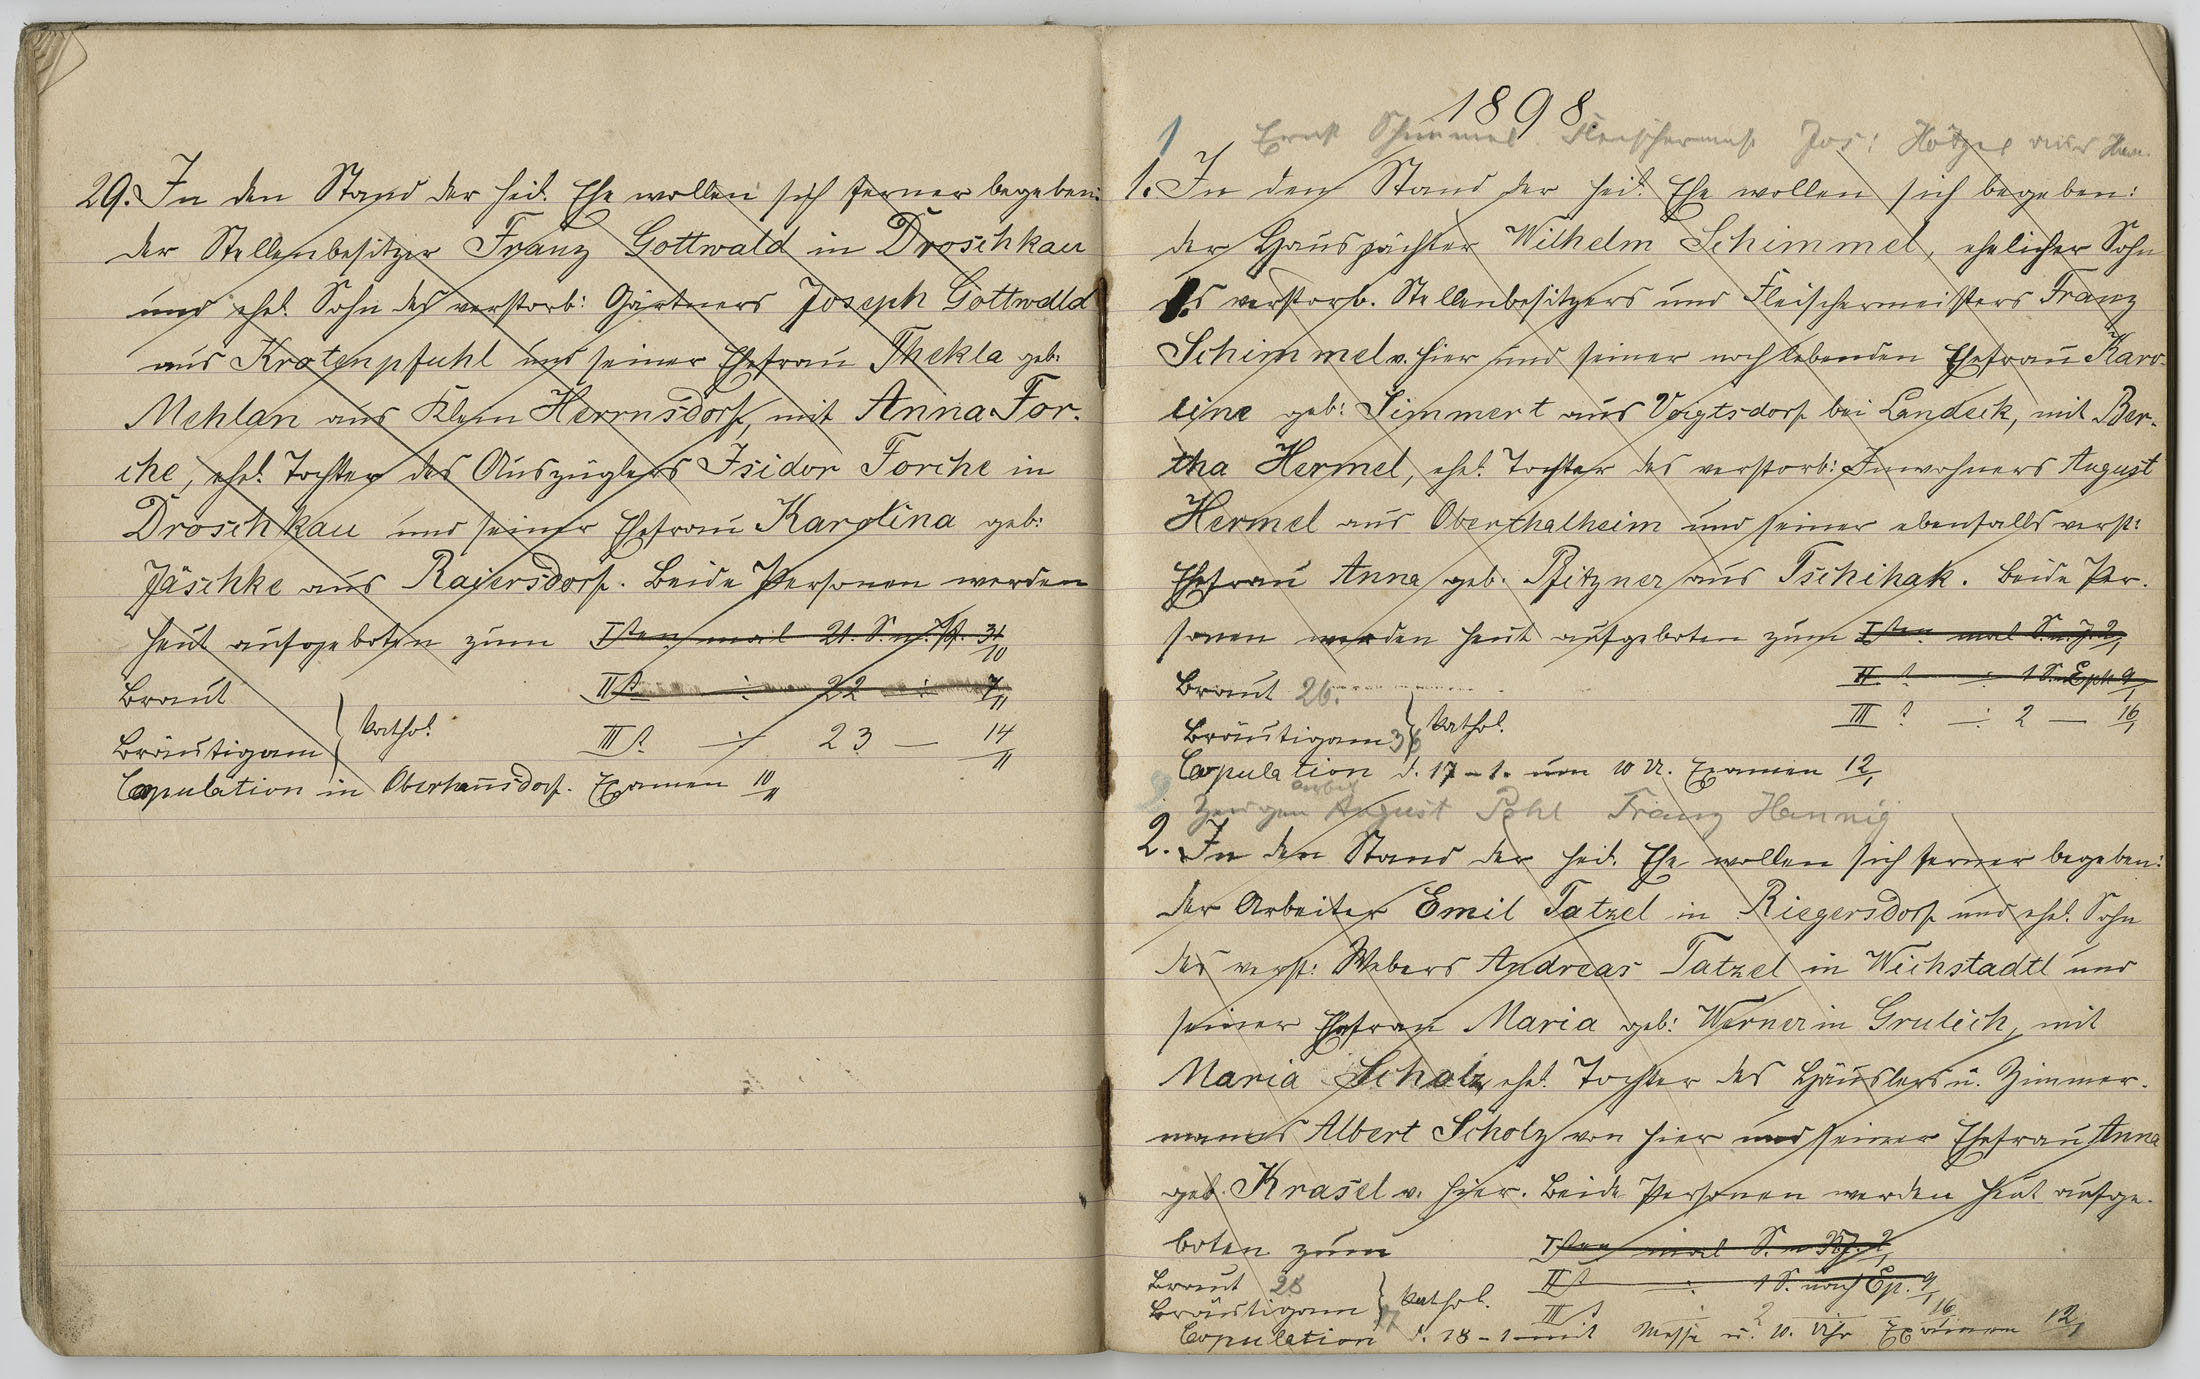 29. In den Stand der heil. Ehe wollen sich ferner begeben:
der Stellenbesitzer Franz Gottwald in Droschkau
und ehel. Sohn des verstorb: Gärtners Joseph Gottwald
aus Krotenpfuhl und seiner Ehefrau Thekla geb:
Mehlan aus Klein Herrnsdorf, mit Anna For-
che, ehel. Tochter des Auszüglers Isidor Forche in
Droschkau und seiner Ehefrau Karolina geb:
Jäschke aus Raiersdorf. Beide Personen werden
heut aufgeboten zum Iten mal 21. S. n. Pf. 31/10
IIt ÷ 22 ÷ 7/11
Braut
Bräutigam } kathol.
IIIt ÷ 23 — 14/11
Copulation in Oberhannsdorf. Examen 10/11
1898.
1 Ernst Schimmel Fleischermstr Jos: Hötzel
1. In den Stand der heil. Ehe wollen sich begeben:
der Hauspächter Wilhelm Schimmel, ehelicher Sohn
des verstorb. Stellenbesitzers und Fleischermeisters Franz
Schimmel v. hier und seiner noch lebenden Ehefrau Karo-
line geb: Simmert aus Voigtsdorf bei Landeck, mit Ber-
tha Hermel, ehel. Tochter des verstorb: Inwohners August
Hermel aus Oberthalheim und seiner ebenfalls verst:
Ehefrau Anna geb. Pfitzner aus Tschihak. Beide Per-
sonen werden heut aufgeboten zum Iten mal S. n. J. 2/1
II t ÷ 1 S. n. Eph 9/1
Braut 26.
Bräutigam 36 } kathol.
III t ÷ 2 — 16/1
Copulation d. 17-1. um 10 U. Examen 12/1
2. Zeugen Arbei August Pohl Franz Hannig
2. In den Stand der heil. Ehe wollen sich ferner begeben:
der Arbeiter Emil Tatzel in Riegersdorf und ehel. Sohn
des verst: Webers Andreas Tatzel in Wichstadtl und
seiner Ehefrau Maria geb: Werner in Grulich, mit
Maria Scholz, ehel. Tochter des Häuslers u. Zimmer-
manns Albert Scholz von hier und seiner Ehefrau Anna
geb. Krasel v. hier. Beide Personen werden heut aufge-
boten zum Iten mal S. n. 2/1
Braut 28
IIt ÷ 1 S. nach Ep. 9/1
Bräutigam 27 } kathol.
III t ÷ 2 16/1
Copulation d. 18-1 mit Messe u. 10. Uhr Examen 12/1